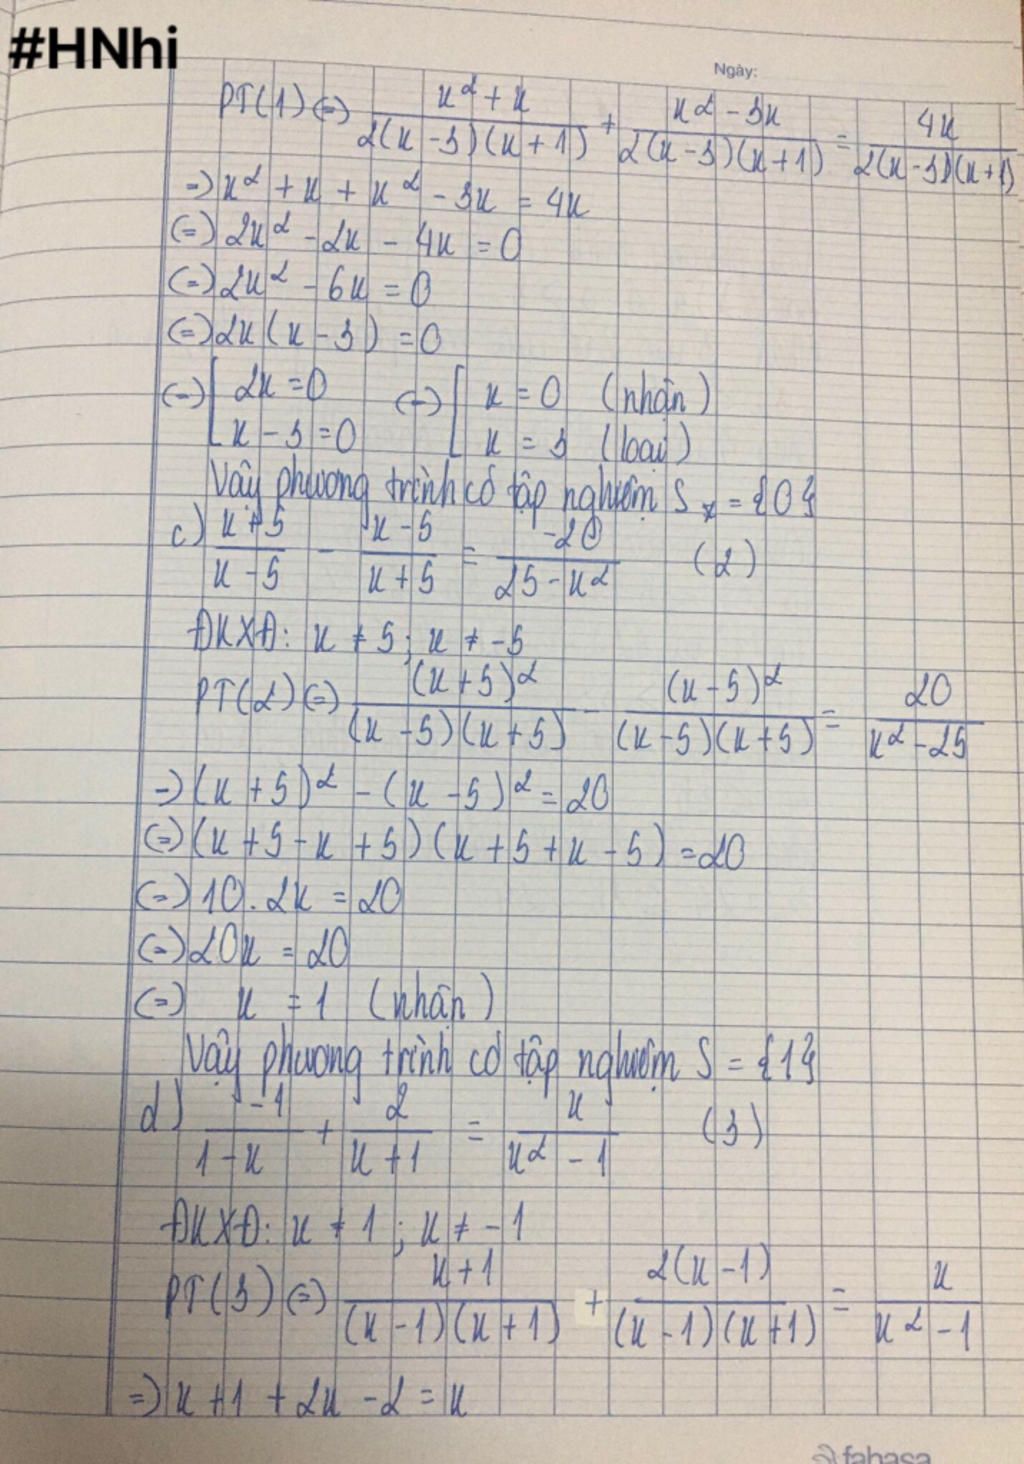 #HNhi
Ngày:
PT(1) (=) x² + x / 2(x - 3)(x + 1) + x² - 3x / 2(x - 3)(x + 1) = 4x / 2(x - 3)(x + 1)
=) x² + x + x² - 3x = 4x
(=) 2x² - 2x - 4x = 0
(=) 2x² - 6x = 0
(=) 2x (x - 3) = 0
(=) [ 2x = 0 (=) [ x = 0 (nhận)
x - 3 = 0 x = 3 (loại)
Vậy phương trình có tập nghiệm S = {0}
c) x + 5 / x - 5 - x - 5 / x + 5 = -20 / 25 - x² (2)
ĐKXĐ: x ≠ 5; x ≠ -5
PT(2) (=) (x + 5)² / (x - 5)(x + 5) - (x - 5)² / (x - 5)(x + 5) = 20 / x² - 25
=) (x + 5)² - (x - 5)² = 20
(=) (x + 5 - x + 5) (x + 5 + x - 5) = 20
(=) 10. 2x = 20
(=) 20x = 20
(=) x = 1 (nhận)
Vậy phương trình có tập nghiệm S = {1}
d) -1 / 1 - x + 2 / x + 1 = x / x² - 1 (3)
ĐKXĐ: x ≠ 1; x ≠ -1
PT(3) (=) x + 1 / (x - 1)(x + 1) + 2(x - 1) / (x - 1)(x + 1) = x / x² - 1
=) x + 1 + 2x - 2 = x
fahasa